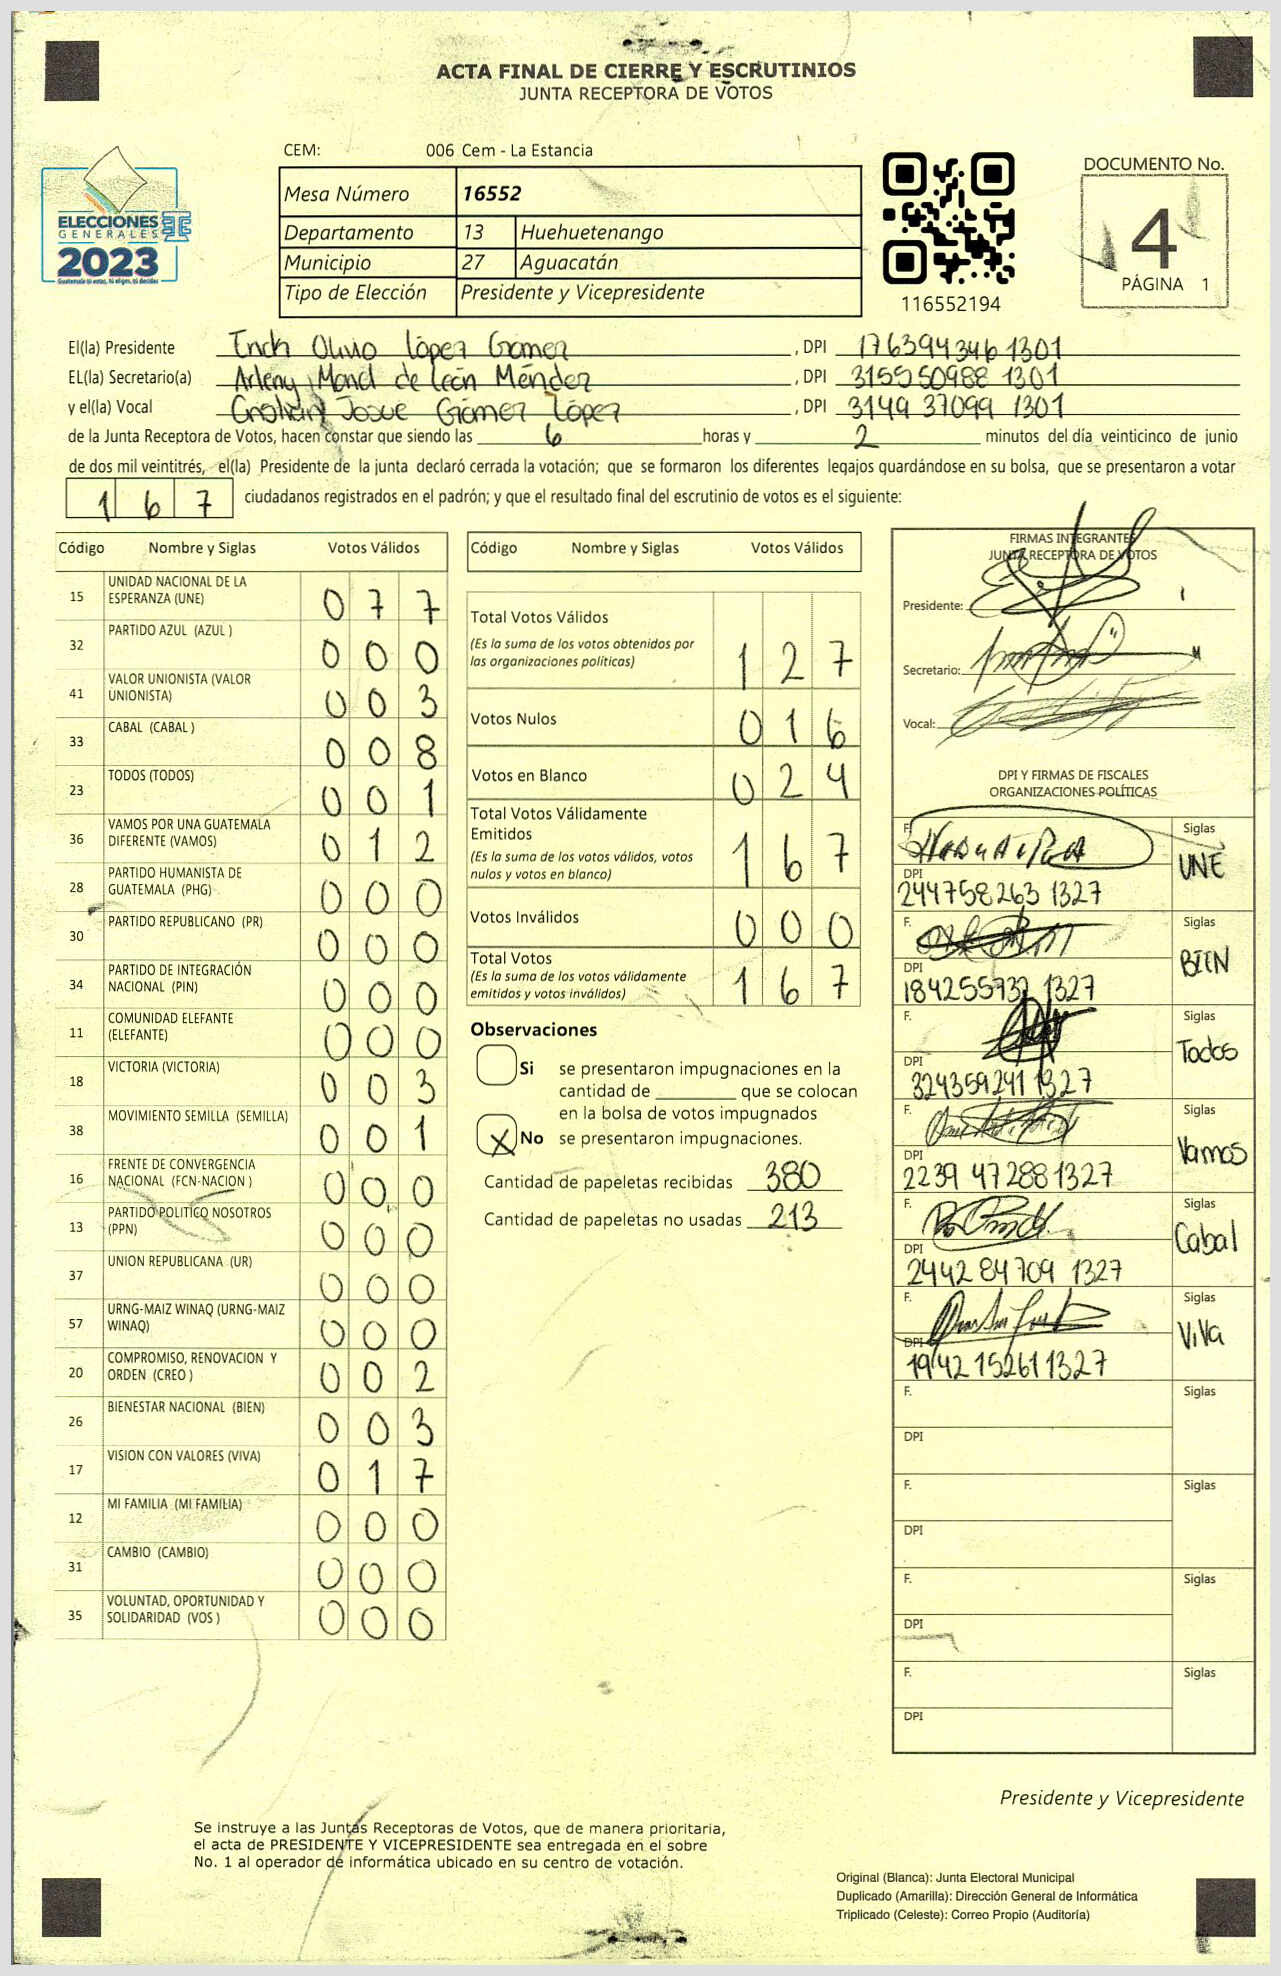 ACTA FINAL DE CIERRE Y ESCRUTINIOS
JUNTA RECEPTORA DE VOTOS
CEM: 006 Cem - La Estancia
Mesa Número 16552
Departamento 13 Huehuetenango
Municipio 27 Aguacatán
Tipo de Elección Presidente y Vicepresidente
ELECCIONES
GENERALES
2023
116552194
DOCUMENTO No.
4
PÁGINA 1
El(la) Presidente Erick Olivio López Gómez , DPI 176394346 1301
EL(la) Secretario(a) Arleny de León Méndez , DPI 315550988 1301
y el(la) Vocal Cristian Josue Gómez López , DPI 3149 37099 1301
de la Junta Receptora de Votos, hacen constar que siendo las 6 horas y 2 minutos del día veinticinco de junio
de dos mil veintitrés, el(la) Presidente de la junta declaró cerrada la votación; que se formaron los diferentes legajos quardándose en su bolsa, que se presentaron a votar
1 6 7 ciudadanos registrados en el padrón; y que el resultado final del escrutinio de votos es el siguiente:
Código Nombre y Siglas Votos Válidos
15 UNIDAD NACIONAL DE LA ESPERANZA (UNE) 0 7 7
32 PARTIDO AZUL (AZUL ) 0 0 0
41 VALOR UNIONISTA (VALOR UNIONISTA) 0 0 3
33 CABAL (CABAL ) 0 0 8
23 TODOS (TODOS) 0 0 1
36 VAMOS POR UNA GUATEMALA DIFERENTE (VAMOS) 0 1 2
28 PARTIDO HUMANISTA DE GUATEMALA (PHG) 0 0 0
30 PARTIDO REPUBLICANO (PR) 0 0 0
34 PARTIDO DE INTEGRACIÓN NACIONAL (PIN) 0 0 0
11 COMUNIDAD ELEFANTE (ELEFANTE) 0 0 0
18 VICTORIA (VICTORIA) 0 0 3
38 MOVIMIENTO SEMILLA (SEMILLA) 0 0 1
16 FRENTE DE CONVERGENCIA NACIONAL (FCN-NACION ) 0 0 0
13 PARTIDO POLITICO NOSOTROS (PPN) 0 0 0
37 UNION REPUBLICANA (UR) 0 0 0
57 URNG-MAIZ WINAQ (URNG-MAIZ WINAQ) 0 0 0
20 COMPROMISO, RENOVACION Y ORDEN (CREO ) 0 0 2
26 BIENESTAR NACIONAL (BIEN) 0 0 3
17 VISION CON VALORES (VIVA) 0 1 7
12 MI FAMILIA (MI FAMILIA) 0 0 0
31 CAMBIO (CAMBIO) 0 0 0
35 VOLUNTAD, OPORTUNIDAD Y SOLIDARIDAD (VOS ) 0 0 0
Código Nombre y Siglas Votos Válidos
Total Votos Válidos
(Es la suma de los votos obtenidos por
las organizaciones políticas) 1 2 7
Votos Nulos 0 1 6
Votos en Blanco 0 2 4
Total Votos Válidamente
Emitidos
(Es la suma de los votos válidos, votos
nulos y votos en blanco) 1 6 7
Votos Inválidos 0 0 0
Total Votos
(Es la suma de los votos válidamente
emitidos y votos inválidos) 1 6 7
Observaciones
Si se presentaron impugnaciones en la
cantidad de ________ que se colocan
en la bolsa de votos impugnados
X No se presentaron impugnaciones.
Cantidad de papeletas recibidas 380
Cantidad de papeletas no usadas 213
FIRMAS INTEGRANTES
JUNTA RECEPTORA DE VOTOS
Presidente:
Secretario:
Vocal:
DPI Y FIRMAS DE FISCALES
ORGANIZACIONES POLÍTICAS
F. Siglas
DPI UNE
244758263 1327
F. Siglas
DPI BIEN
184255732 1327
F. Siglas
DPI Todos
324359241 1327
F. Siglas
DPI Vamos
2239 47288 1327
F. Siglas
DPI Cabal
2442 84709 1327
F. Siglas
DPI ViVa
1942 15261 1327
F. Siglas
DPI
F. Siglas
DPI
F. Siglas
DPI
F. Siglas
DPI
Presidente y Vicepresidente
Se instruye a las Juntas Receptoras de Votos, que de manera prioritaria,
el acta de PRESIDENTE Y VICEPRESIDENTE sea entregada en el sobre
No. 1 al operador de informática ubicado en su centro de votación.
Original (Blanca): Junta Electoral Municipal
Duplicado (Amarilla): Dirección General de Informática
Triplicado (Celeste): Correo Propio (Auditoría)